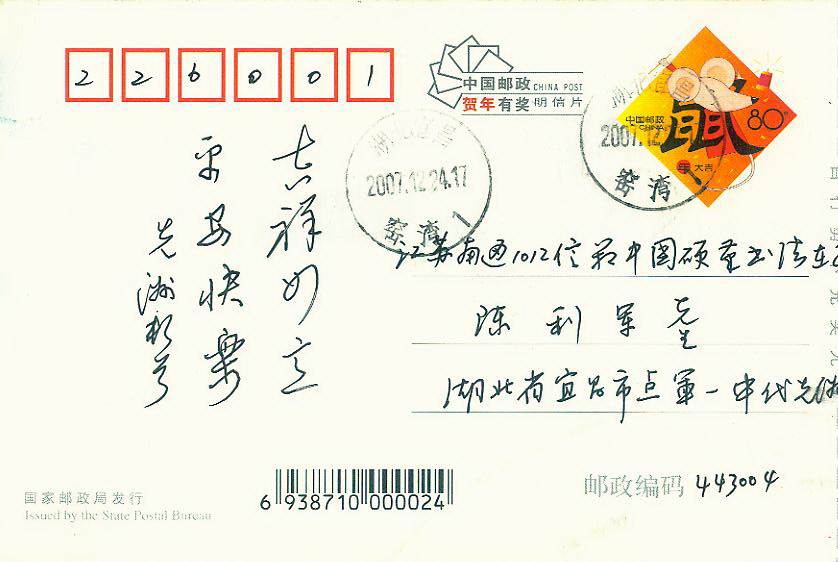 226001
中国邮政 CHINA POST
贺年有奖 明信片
中国邮政
CHINA
80分
鼠
年 大吉
湖北宜昌
2007.12.24.17
窑湾 1
湖北宜昌
2007.12
窑湾
吉祥如意
平安快乐
江苏南通1012信箱中国硕董书法在
陈利军先生
湖北省宜昌市点軍一中代先洲
国家邮政局发行
Issued by the State Postal Bureau
6 938710 000024
邮政编码 443004